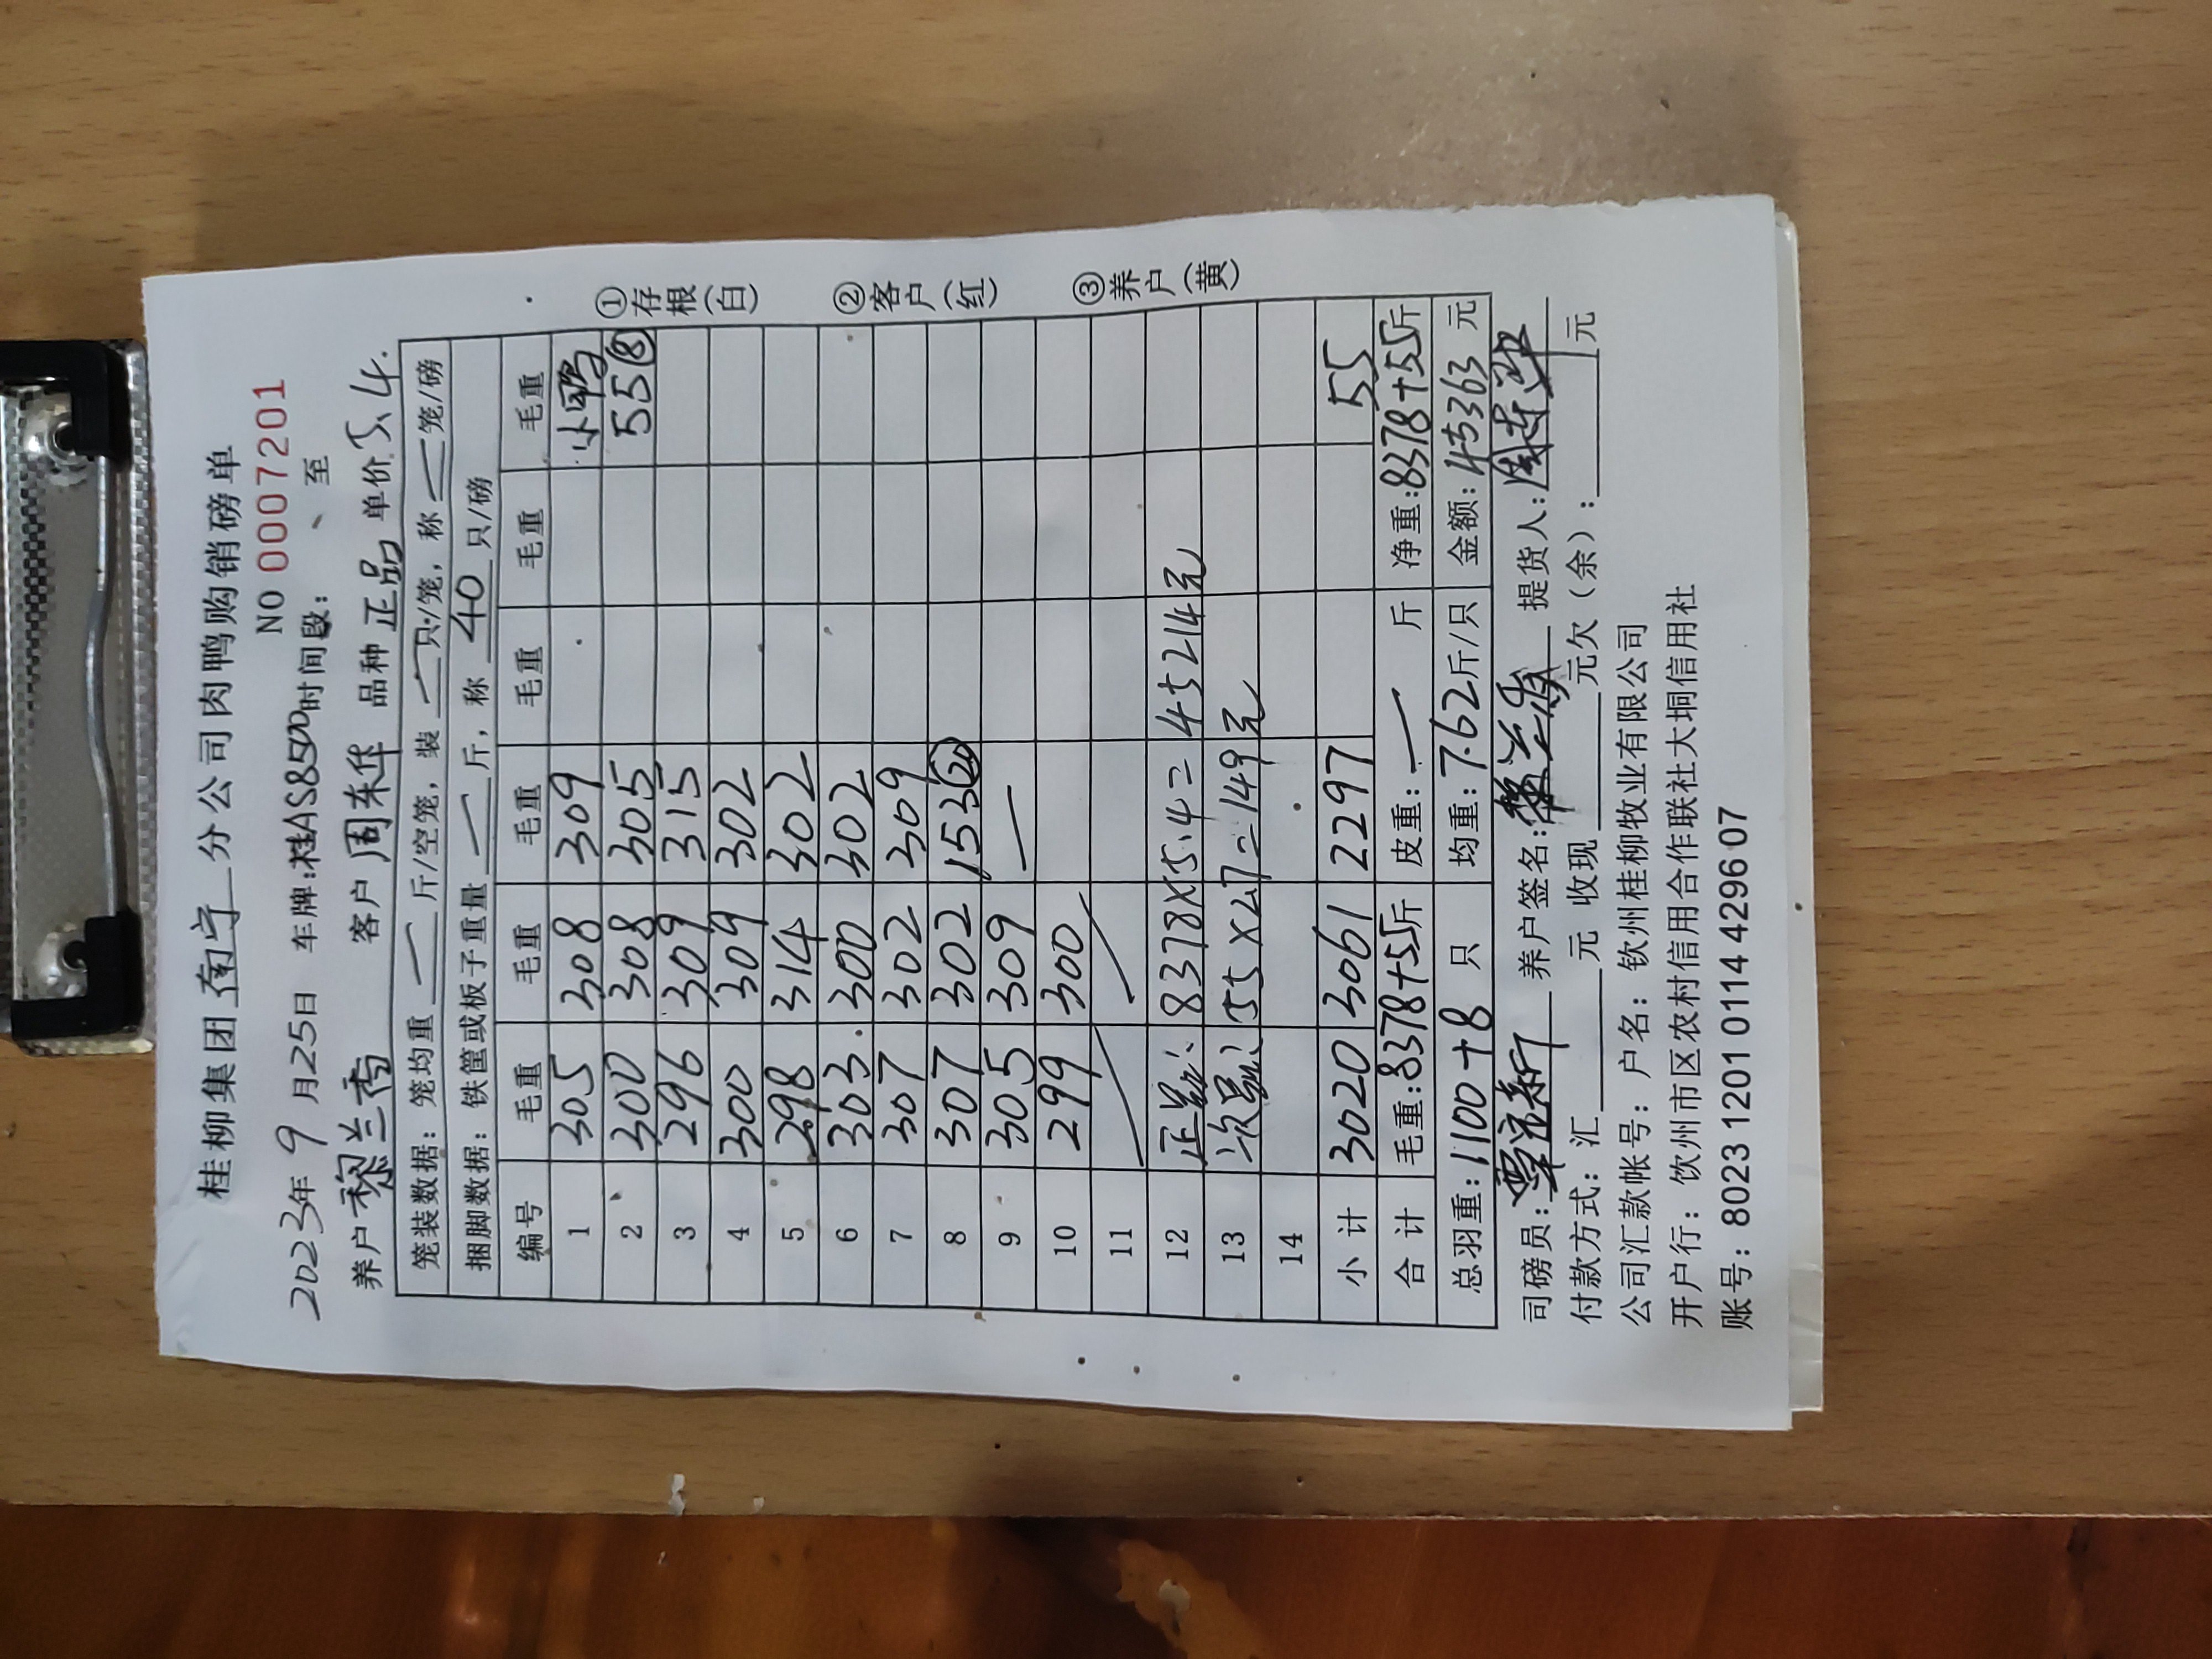 桂柳集团南宁分公司肉鸭购销磅单
NO 0007201
2023年9月25日 车牌:桂AS8500时间段: 至
养户黎兰香 客户周东华 品种正品 单价5.4.
笼装数据: 笼均重 一 斤/空笼, 装 一 只/笼, 称 一 笼/磅
捆脚数据: 铁筐或板子重量 一 斤, 称 40 只/磅
编号 毛重 毛重 毛重 毛重 毛重 毛重
1 305 308 309 小鸭
2 300 308 305 55⑧
3 296 309 315
4 300 309 302
5 298 314 302
6 303. 300 302
7 307 302 309
8 307 302 153⑳
9 305 309 一
10 299 300
11
12 正品: 8378×5.4=45214元
13 次品: 55×2.7=149元
14
小计 3020 3061 2297 55
合计 毛重:8378+55斤 皮重:一 斤 净重:8378+55斤
总羽重:1100+8 只 均重:7.62斤/只 金额:45363 元
司磅员: 养户签名: 提货人:周东华
付款方式: 汇 元 收现 元欠(余): 元
公司汇款帐号: 户名: 钦州桂柳牧业有限公司
开户行: 饮州市区农村信用合作联社大垌信用社
账号: 8023 1201 0114 4296 07
①存根(白)
②客户(红)
③养户(黄)